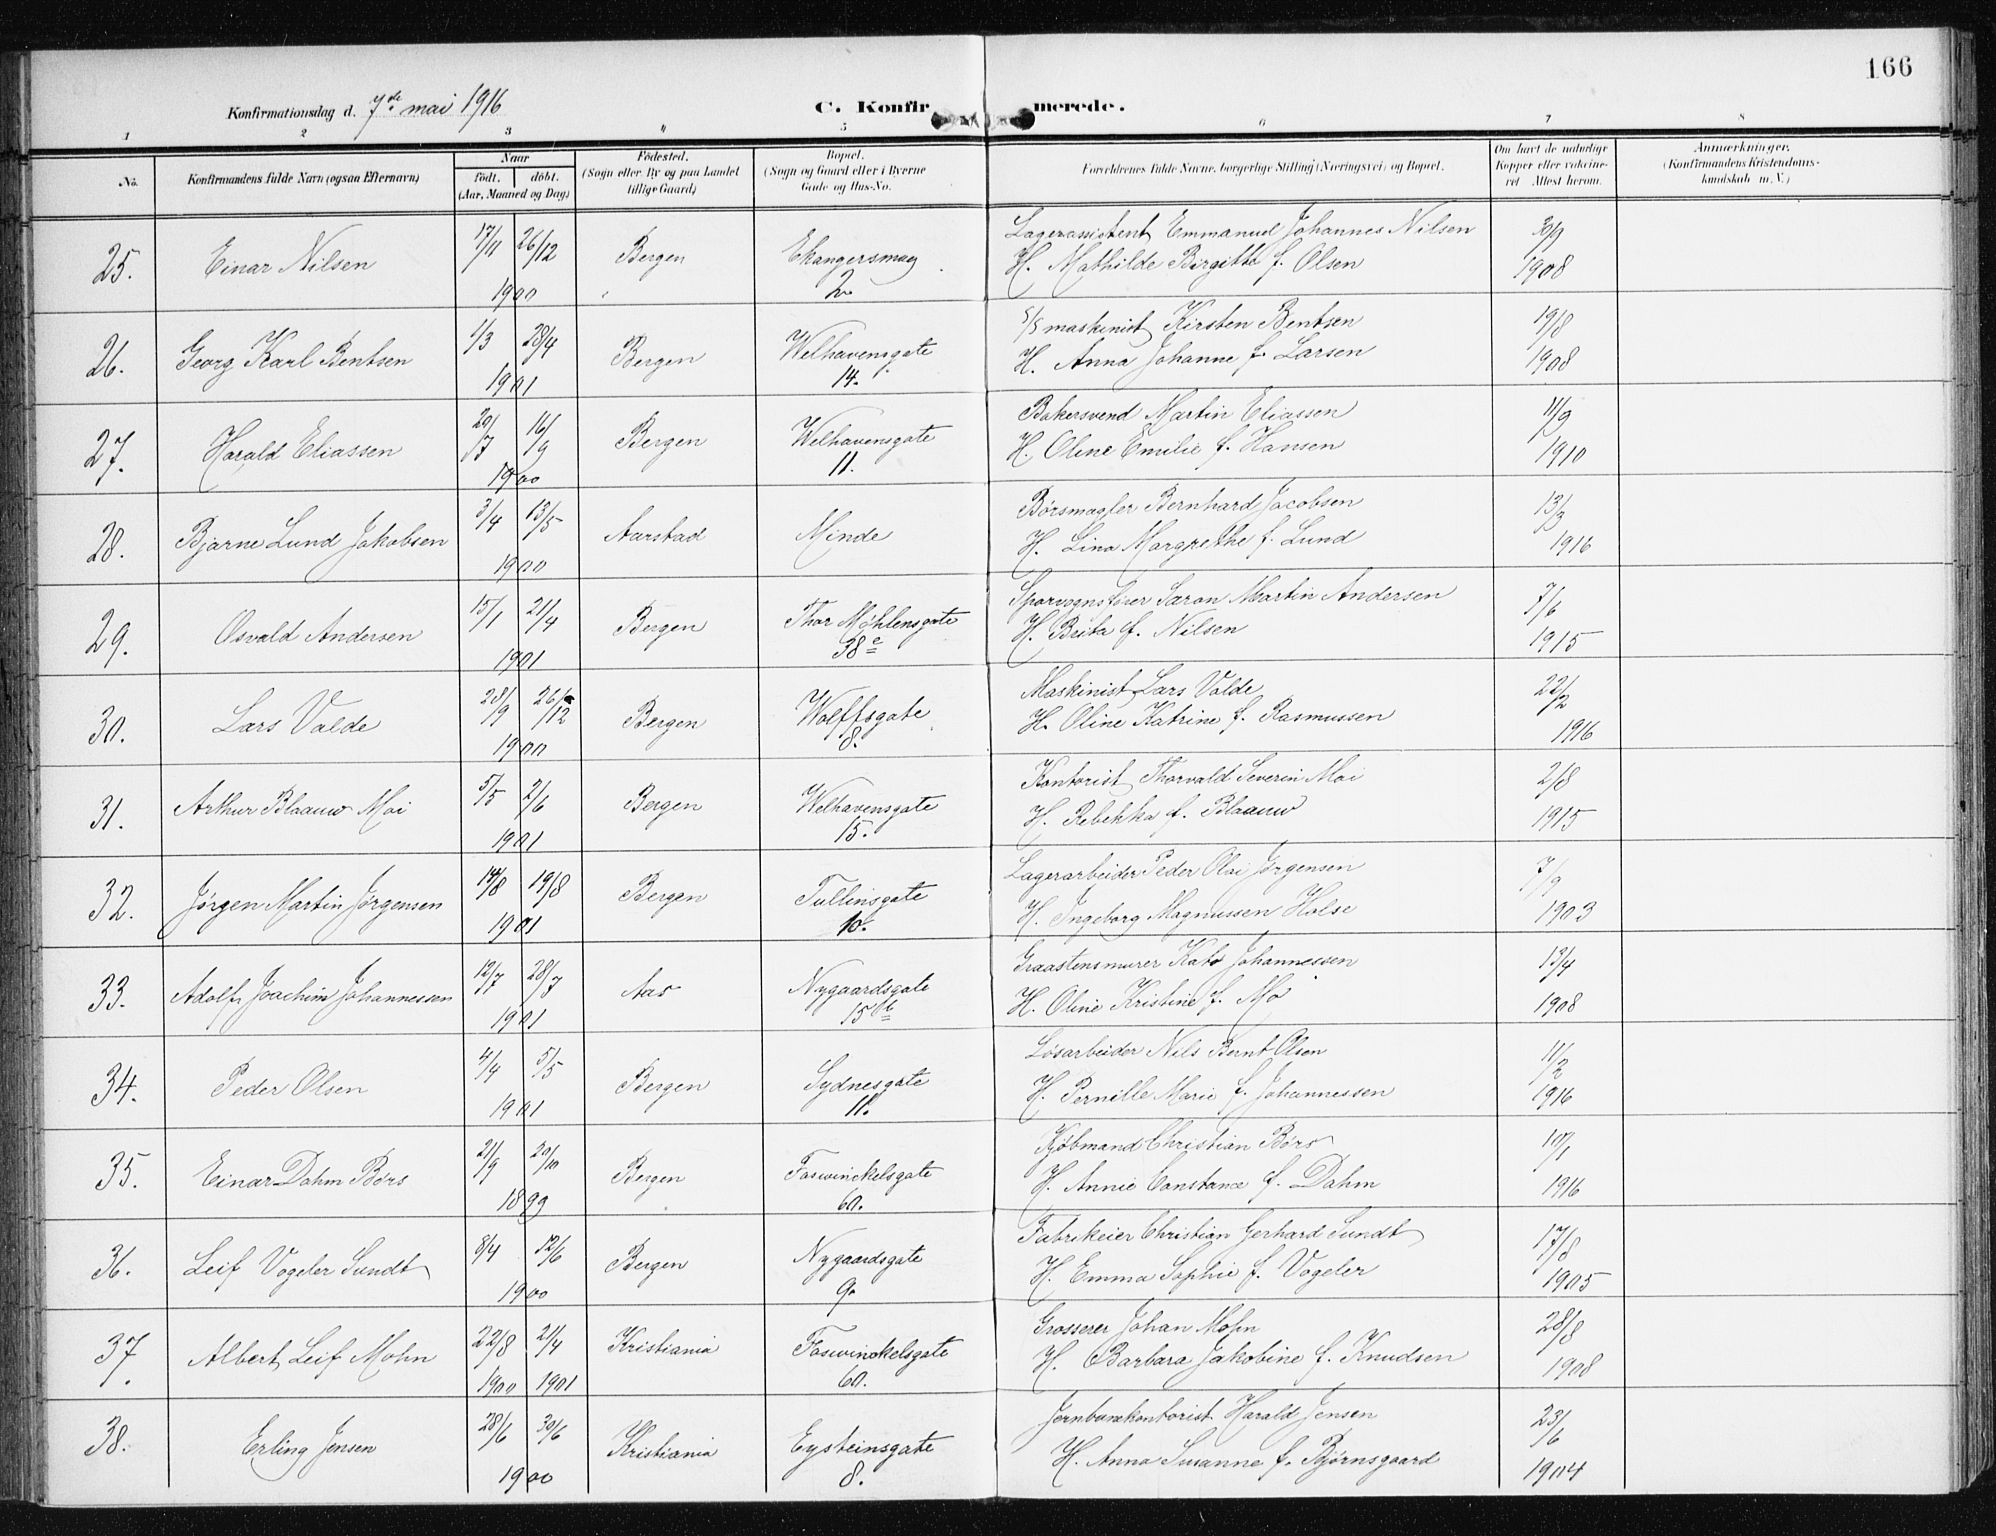 166
Konfirmationsdag d. 7de mai 1916
C. Konfirmerede.
1 2 3 4 5 6 7 8
No.
Konfirmandens fulde Navn (ogsaa Efternavn)
Naar
født. døbt.
(Aar, Maaned og Dag)
Fødested.
(Sogn eller By og paa Landet
tillige Gaard)
Bopæl.
(Sogn og Gaard eller i Byerne
Gade og Hus-No.
Forældrenes fulde Navne, borgerlige Stilling (Næringsvei) og Bopæl.
Om havt de naturlige
Kopper eller vakcine-
ret Attest herom.
Anmerkninger.
(Konfirmandens Kristendoms-
kundskab m. V.)
25. Einar Nilsen 17/11 26/12 1900 Bergen Ekangersmug 2
Lagerassistent Emmanuel Johannes Nilsen
H. Mathilde Birgitte f. Olsen
30/9 1908
26. Georg Karl Bentsen 1/3 28/4 1901 Bergen Welhavensgate 14.
s/s maskinist Kirsten Bentsen
H. Anna Johanne f. Larsen
19/8 1908
27. Harald Eliassen 20/7 16/9 1900 Bergen Welhavensgate 11.
Bakersvend Martin Eliassen
H. Oline Emilie f. Hansen
11/9 1910
28. Bjarne Lund Jakobsen 3/4 13/5 1900 Aarstad Minde
Børsmægler Bernhard Jacobsen
H. Lina Margrethe f. Lund
13/3 1916
29. Osvald Andersen 15/1 21/4 1901 Bergen Thor Møhlensgate 38c
Sporvognsfører Saron Martin Andersen
H. Brita f. Nilsen
7/6 1915
30. Lars Valde 28/9 26/12 1900 Bergen Wolffsgate 8.
Maskinist Lars Valde
H. Oline Katrine f. Rasmussen
22/2 1916
31. Arthur Blaauw Moi 5/5 2/6 1901 Bergen Welhavensgate 15.
Kontorist Thorvald Severin Moi
H. Rebekka f. Blaauw
2/8 1915
32. Jørgen Martin Jørgensen 14/8 19/8 1901 Bergen Tullinsgate 10.
Lagerarbeider Peder Olai Jørgensen
H. Ingeborg Magnussen Holse
7/9 1903
33. Adolf Joachim Johannessen 12/7 28/7 1901 Aas Nygaardsgate 15b
Graastensmurer Kato Johannessen
H. Oline Kristine f. Mo
13/4 1908
34. Peder Olsen 4/4 5/5 1901 Bergen Sydnesgate 11.
Løsarbeider Nils Bernt Olsen
H. Pernille Marie f. Johannessen
11/2 1916
35. Einar Dahm Børs 21/9 20/10 1899 Bergen Foswinckelsgate 60.
Kjøbmand Christian Børs
H. Annie Constance f. Dahm
10/1 1916
36. Leif Vogeler Sundt 8/4 12/6 1900 Bergen Nygaardsgate 9
Fabrikeier Christian Gerhard Sundt
H. Emma Sophie f. Vogeler
17/8 1905
37. Albert Leif Mohn 22/8 1900 21/4 1901 Kristiania Foswinckelsgate 60.
Grosserer Johan Mohn
H. Barbara Jakobine f. Knudsen
28/8 1908
38. Erling Jensen 28/6 30/6 1900 Kristiania Eysteinsgate 8.
Jernbanekontorist Harald Jensen
H. Anna Susanne f. Bjørnsgaard
23/6 1904